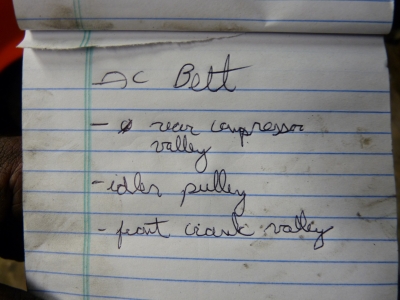 AC Belt
- rear compressor
valley
- idler pulley
- front crank valley